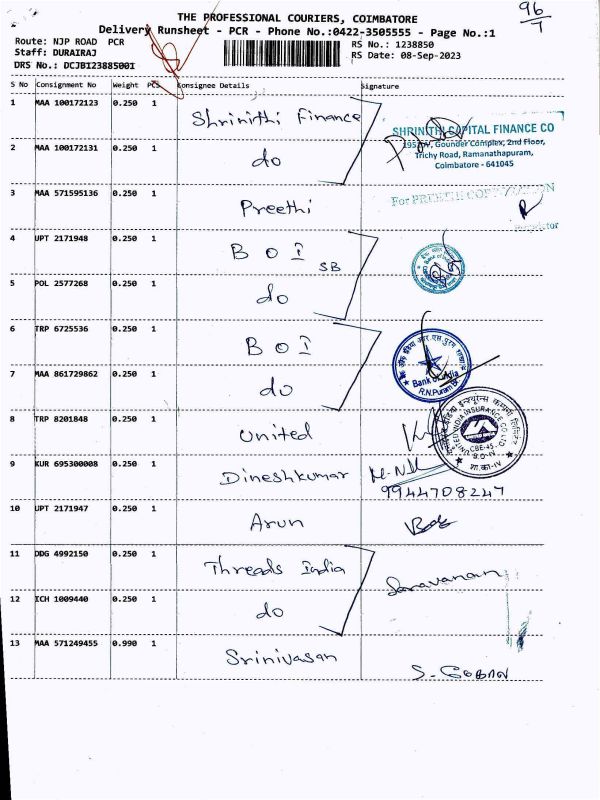 96/T
THE PROFESSIONAL COURIERS, COIMBATORE
Delivery Runsheet - PCR - Phone No.:0422-3505555 - Page No.:1
Route: NJP ROAD PCR
RS No.: 1238850
Staff: DURAIRAJ
RS Date: 08-Sep-2023
DRS No.: DCJB12388500I
S No Consignment No Weight PCS Consignee Details Signature
1 MAA 100172123 0.250 1 Shrinithi Finance
SHRINITHI CAPITAL FINANCE CO
Gounder Complex, 2nd Floor,
Trichy Road, Ramanathapuram,
Coimbatore - 641045
2 MAA 100172131 0.250 1 do
3 MAA 571595136 0.250 1 Preethi
For
4 UPT 2171948 0.250 1 B O I SB
5 POL 2577268 0.250 1 do
6 TRP 6725536 0.250 1 B O I
Bank of India
R.N.Puram Br.
7 MAA 861729862 0.250 1 do
8 TRP 8201848 0.250 1 United
UNITED INDIA INSURANCE CO. LTD.
CBE-45
B.O-IV
9 KUR 695300008 0.250 1 Dineshkumar
9944708247
10 UPT 2171947 0.250 1 Arun
11 DDG 4992150 0.250 1 Threads India Saravanan
12 ICH 1009440 0.250 1 do
13 MAA 571249455 0.990 1 Srinivasan